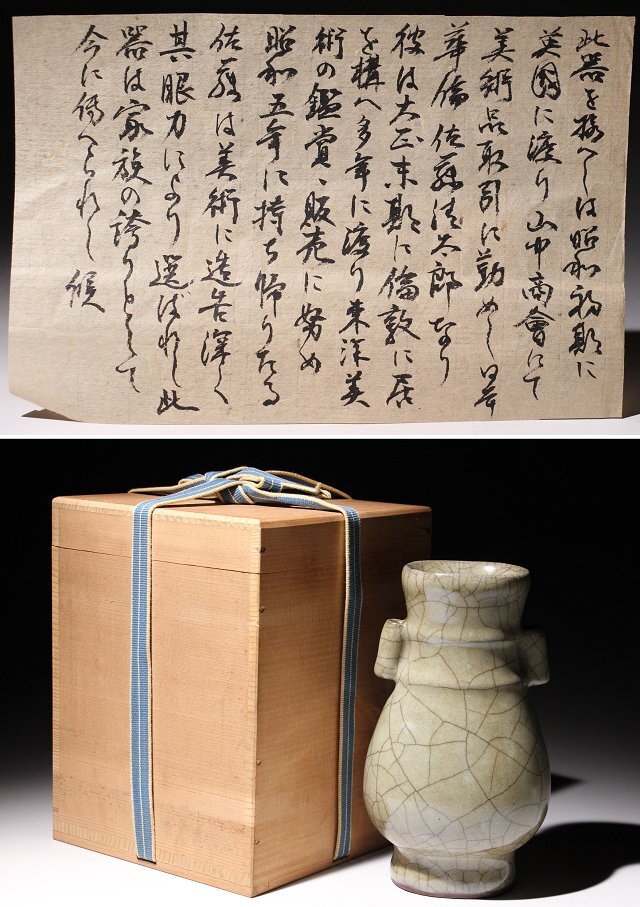 此器を撥へしは昭和初期に
英國に渡り山中商會にて
美術品取引に勤めし日英
華儒佐藤清太郎なり
彼は大正末期に倫敦に居
を構へ多年に渡り東洋美
術の鑑賞、販売に努め
昭和五年に持ち帰りたる
佐藤は美術に造告深く
其眼力により選ばれし此
器は家族の誇りとして
今に傳へられし候